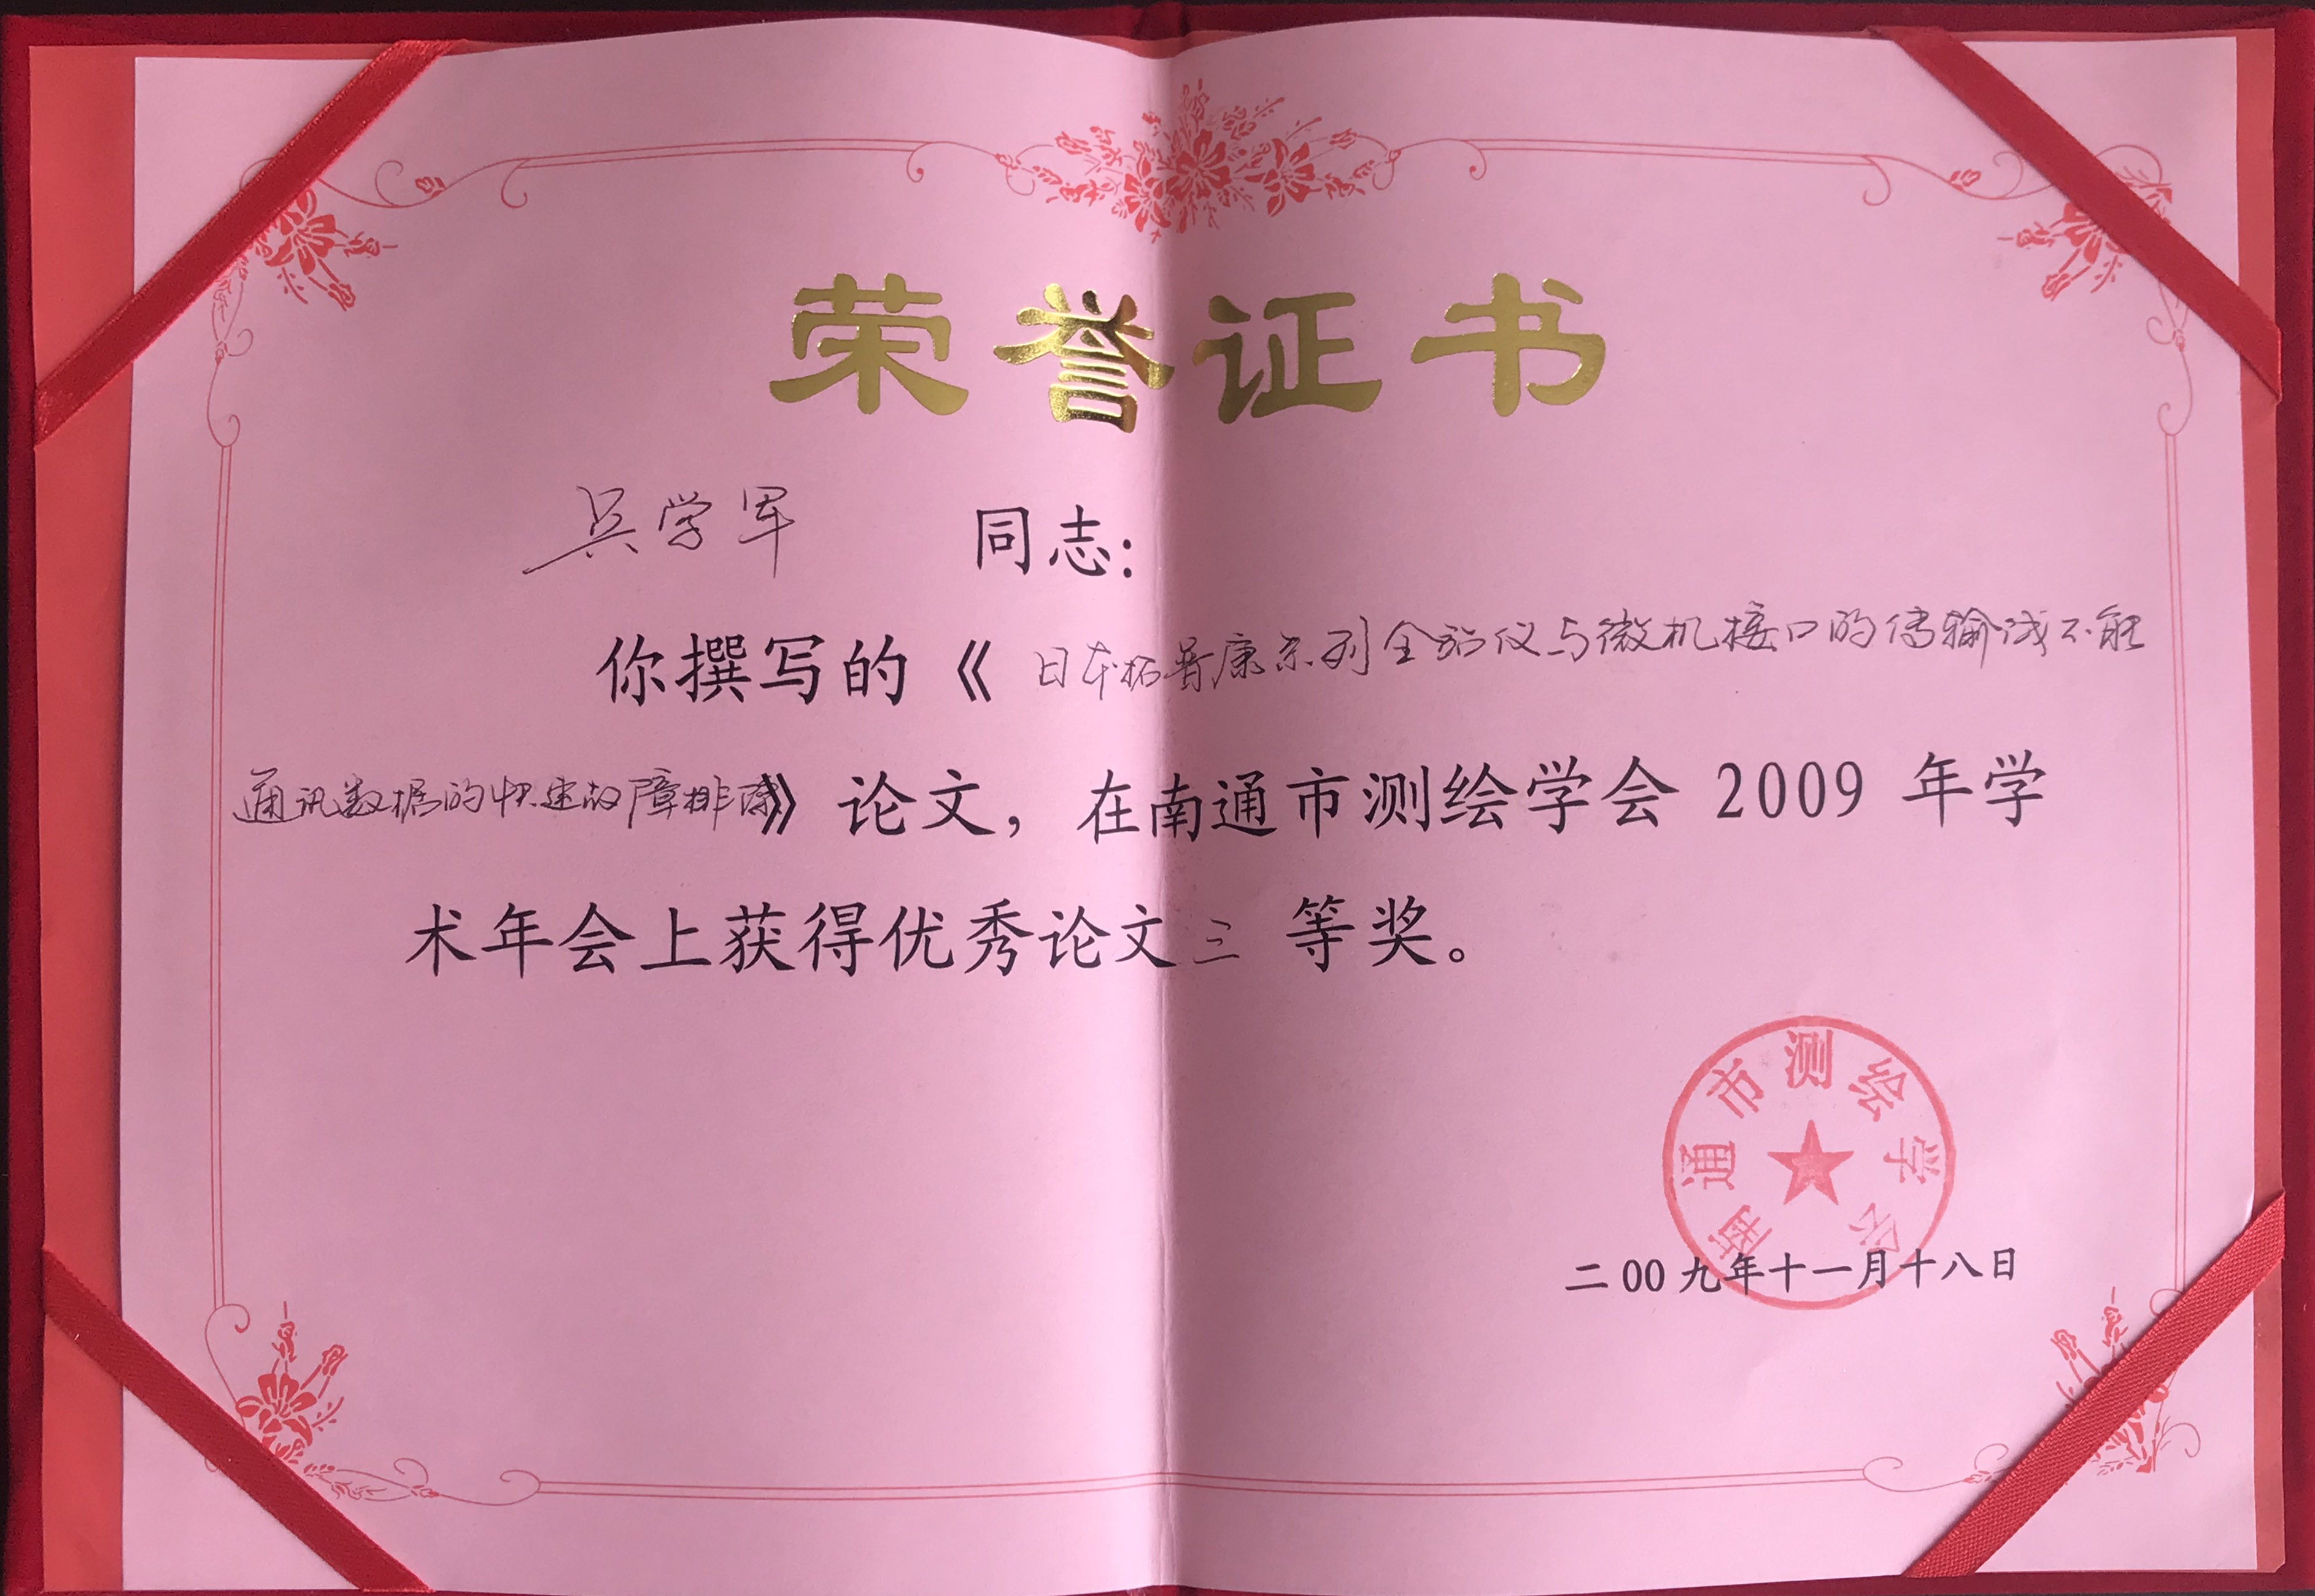 荣誉证书
吴学军 同志:
你撰写的《日本拓普康系列全站仪与微机接口的传输线不能
通讯数据的快速故障排除》论文，在南通市测绘学会 2009 年学
术年会上获得优秀论文三等奖。
南通市测绘学会
二00九年十一月十八日